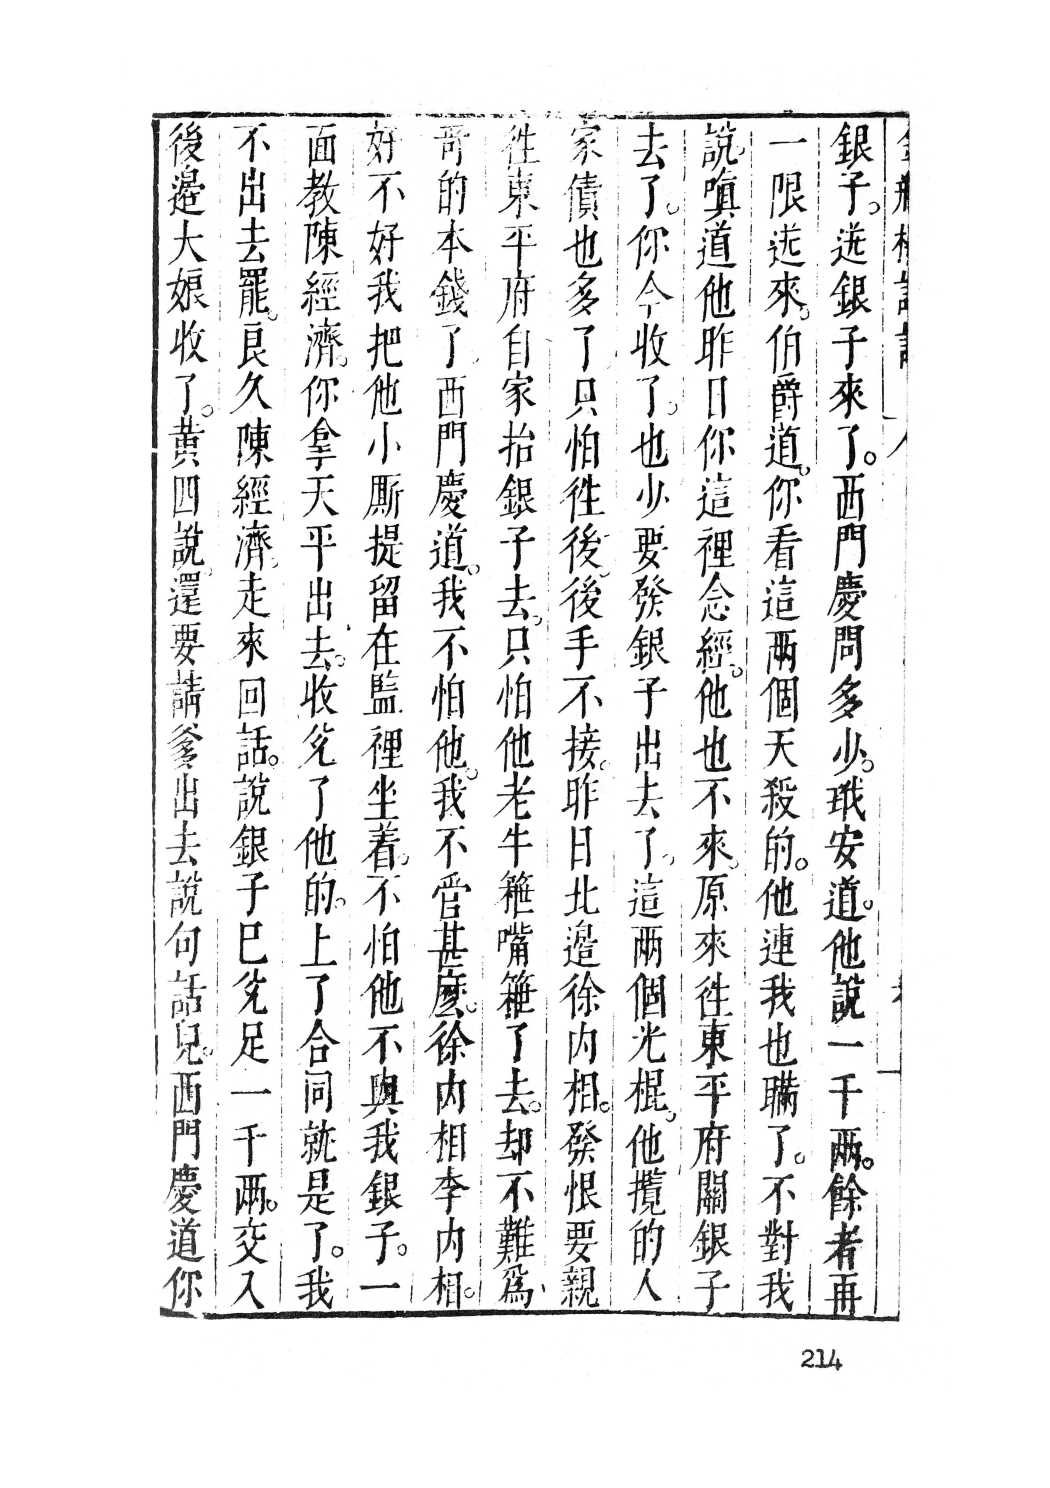 銀子。送銀子來了。西門慶問多少。玳安道。他說一千兩。餘者再
一限送來。伯爵道。你看這兩個天殺的。他連我也瞞了。不對我
說。嗔道他昨日你這裡念經。他也不來。原來徃東平府關銀子
去了。你今收了。也少要發銀子出去了。這兩個光棍。他攬的人
家債也多了。只怕徃後後手不接。昨日北邉徐內相。發恨要親
徃東平府自家抬銀子去。只怕他老牛箍嘴箍了去。却不難爲
哥的本錢了。西門慶道。我不怕他。我不管甚麼。徐內相李內相。
好不好我把他小厮提留在監裡坐着。不怕他不與我銀子。一
面教陳經濟。你拿天平出去。收兌了他的。上了合同就是了。我
不出去罷。良久陳經濟走來回話。說銀子已兌足一千兩。交入
後邉大娘收了。黃四說。還要請爹出去說句話兒。西門慶道你
214